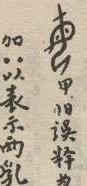 甲、旧误释为
加八以表示两乳